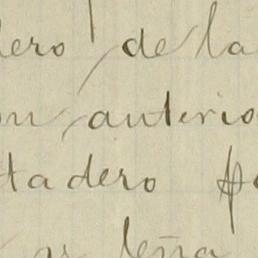 dero de la
on anterio
tadero
ar leña